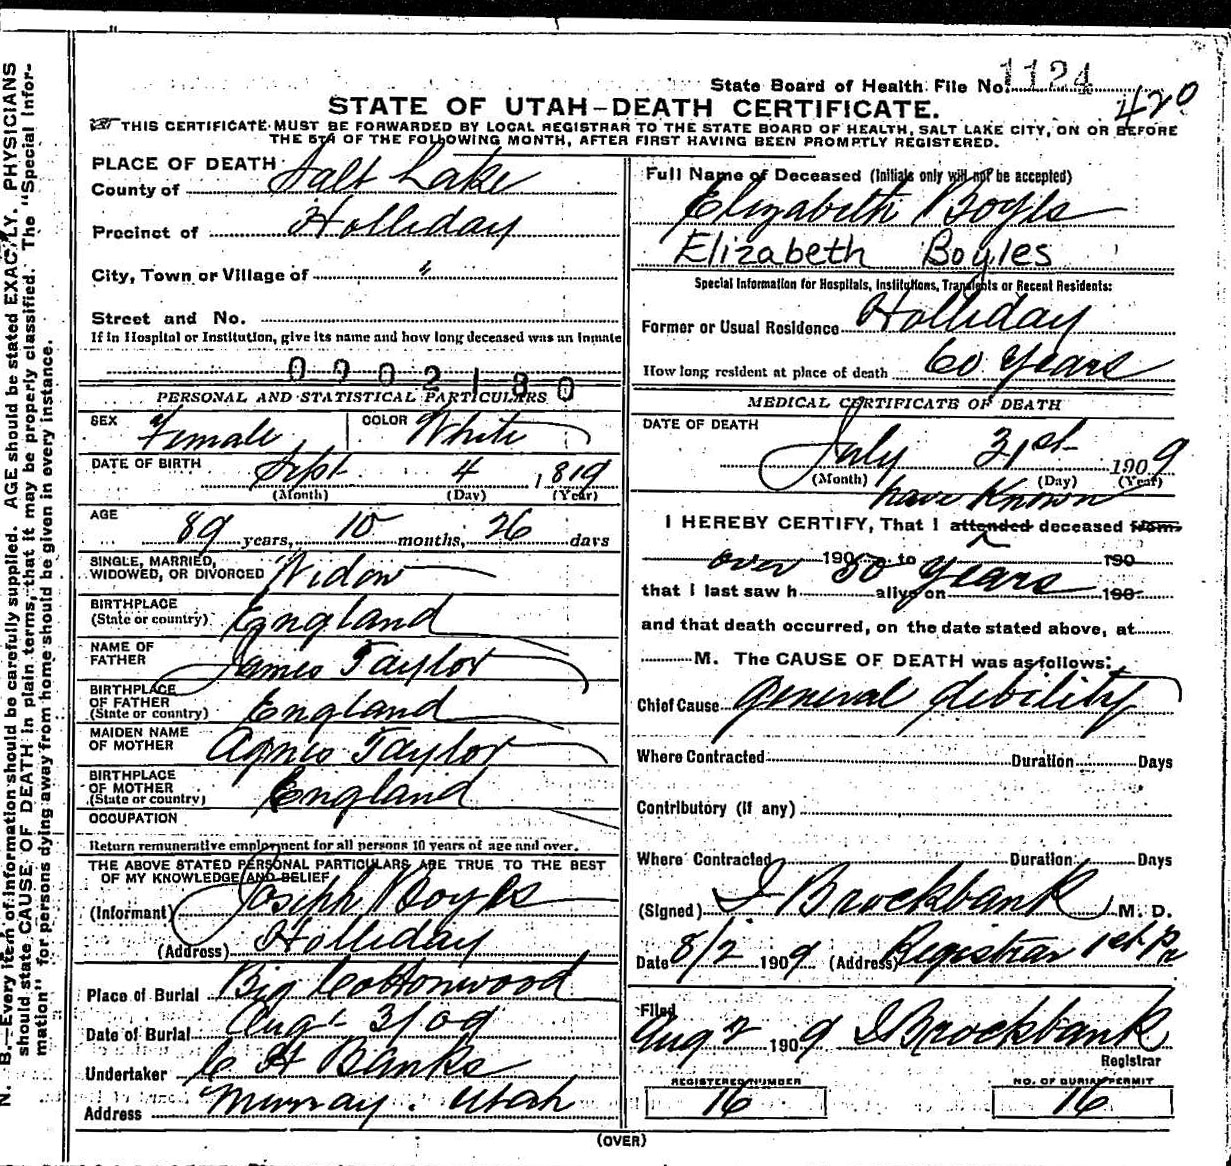 State Board of Health File No. 1124
420
STATE OF UTAH-DEATH CERTIFICATE.
THIS CERTIFICATE MUST BE FORWARDED BY LOCAL REGISTRAR TO THE STATE BOARD OF HEALTH, SALT LAKE CITY, ON OR BEFORE
THE 5TH OF THE FOLLOWING MONTH, AFTER FIRST HAVING BEEN PROMPTLY REGISTERED.
PLACE OF DEATH
County of Salt Lake
Precinct of Holliday
City, Town or Village of "
Street and No.
If in Hospital or Institution, give its name and how long deceased was an Inmate
0002180
PERSONAL AND STATISTICAL PARTICULARS
SEX Female COLOR White
DATE OF BIRTH Sept 4, 1819
(Month) (Day) (Year)
AGE 89 years, 10 months, 26 days
SINGLE, MARRIED,
WIDOWED, OR DIVORCED Widow
BIRTHPLACE
(State or country) England
NAME OF
FATHER James Taylor
BIRTHPLACE
OF FATHER
(State or country) England
MAIDEN NAME
OF MOTHER Agnes Taylor
BIRTHPLACE
OF MOTHER
(State or country) England
OCCUPATION
Return remunerative employment for all persons 10 years of age and over.
THE ABOVE STATED PERSONAL PARTICULARS ARE TRUE TO THE BEST
OF MY KNOWLEDGE AND BELIEF
(Informant) Joseph Boyles
(Address) Holliday
Place of Burial Big Cottonwood
Date of Burial Aug- 3/09
Undertaker C H Banks
Address Murray. Utah
Full Name of Deceased (Initials only will not be accepted)
Elizabeth Boyls
Elizabeth Boyles
Special Information for Hospitals, Institutions, Transients or Recent Residents:
Former or Usual Residence Holliday
How long resident at place of death 60 years
MEDICAL CERTIFICATE OF DEATH
DATE OF DEATH
July 31st 1909
(Month) (Day) (Year)
have Known
I HEREBY CERTIFY, That I attended deceased from
over 190 50 to years 190
that I last saw h alive on 190
and that death occurred, on the date stated above, at
M. The CAUSE OF DEATH was as follows:
Chief Cause general debility
Where Contracted Duration Days
Contributory (if any)
Where Contracted Duration Days
(Signed) I Brockbank M. D.
Date 8/2 1909 (Address) Registrar 1st Pr
Filed
Aug 2 1909 I Brockbank
Registrar
REGISTERED NUMBER
16
NO. OF BURIAL PERMIT
16
(OVER)
N. B.—Every item of information should be carefully supplied. AGE should be stated EXACTLY. PHYSICIANS
should state CAUSE OF DEATH in plain terms, that it may be properly classified. The "Special Infor-
mation" for persons dying away from home should be given in every instance.